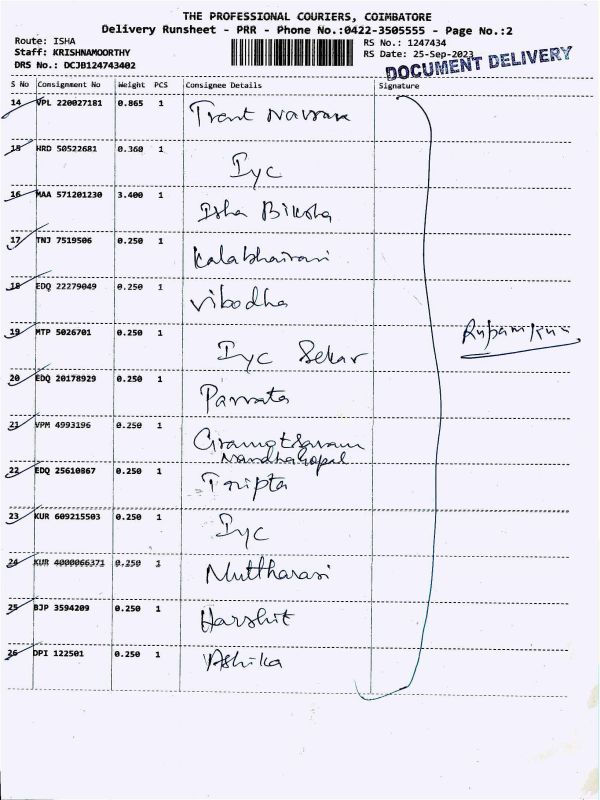 THE PROFESSIONAL COURIERS, COIMBATORE
Delivery Runsheet - PRR - Phone No.:0422-3505555 - Page No.:2
Route: ISHA
Staff: KRISHNAMOORTHY
DRS No.: DCJB124743402
RS No.: 1247434
RS Date: 25-Sep-2023
DOCUMENT DELIVERY
S No Consignment No Weight PCS Consignee Details Signature
14 VPL 220027181 0.865 1
15 HRD 50522681 0.360 1 Iyc
16 MAA 571201230 3.400 1 Isha Biksha
17 TNJ 7519506 0.250 1 Kalabhairavi
18 EDQ 22279049 0.250 1 Vibodha
19 MTP 5026701 0.250 1 Iyc Sekar
20 EDQ 20178929 0.250 1
21 VPM 4993196 0.250 1 Gramotsavam
Nandhagopal
22 EDQ 25610867 0.250 1 Tripta
23 KUR 609215503 0.250 1 Iyc
24 KUR 4000066371 0.250 1 Muttharasi
25 BJP 3594209 0.250 1 Harshit
26 DPI 122501 0.250 1 Ashika